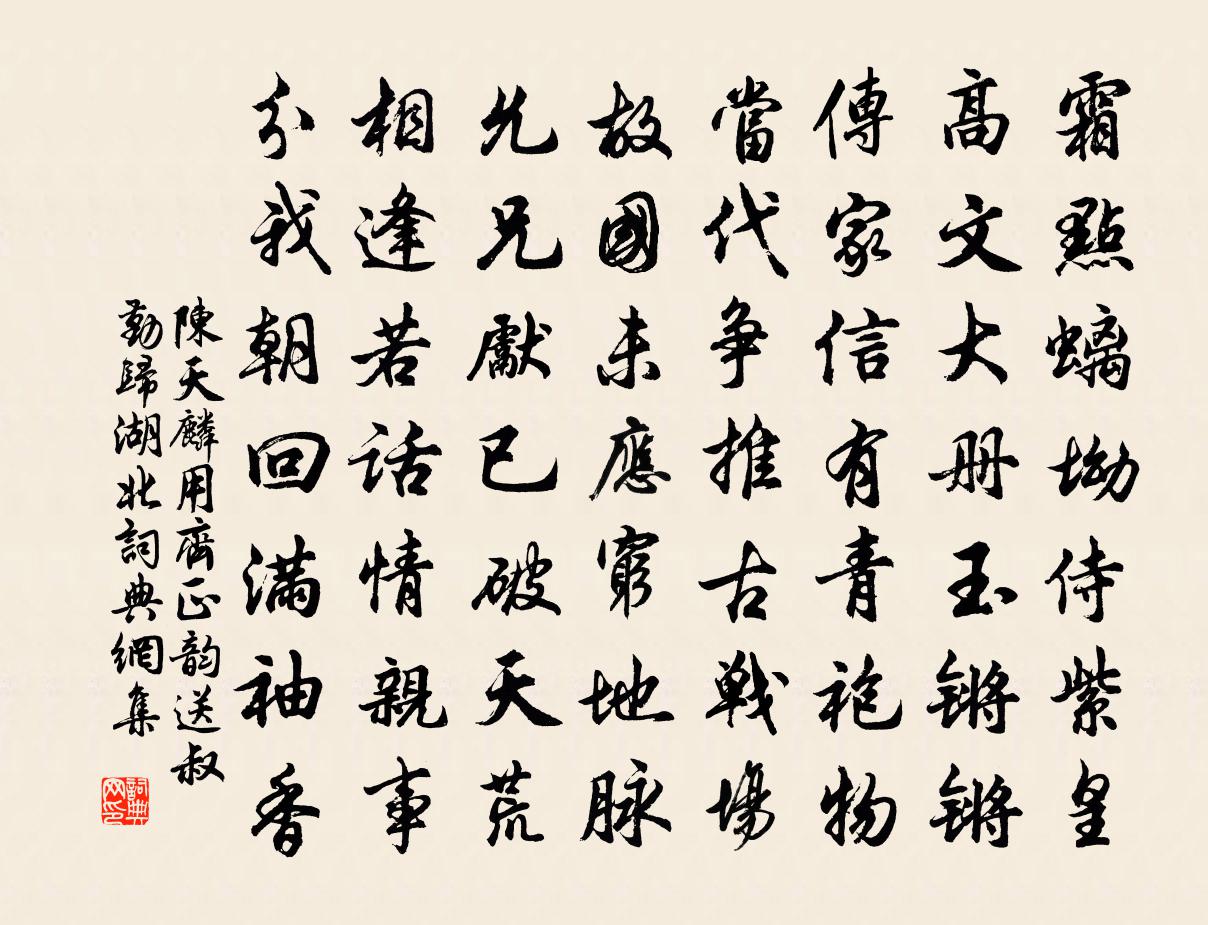 霜點螭坳侍紫皇
高文大册玉锵锵
傳家信有青袍物
當代爭推古戰場
故國未應窮地脉
先兄獻已破天荒
相逢若話情親事
分我朝回滿袖香
陳天麟用齊正韵送叔
勤歸湖北詞典網集
詞典网印